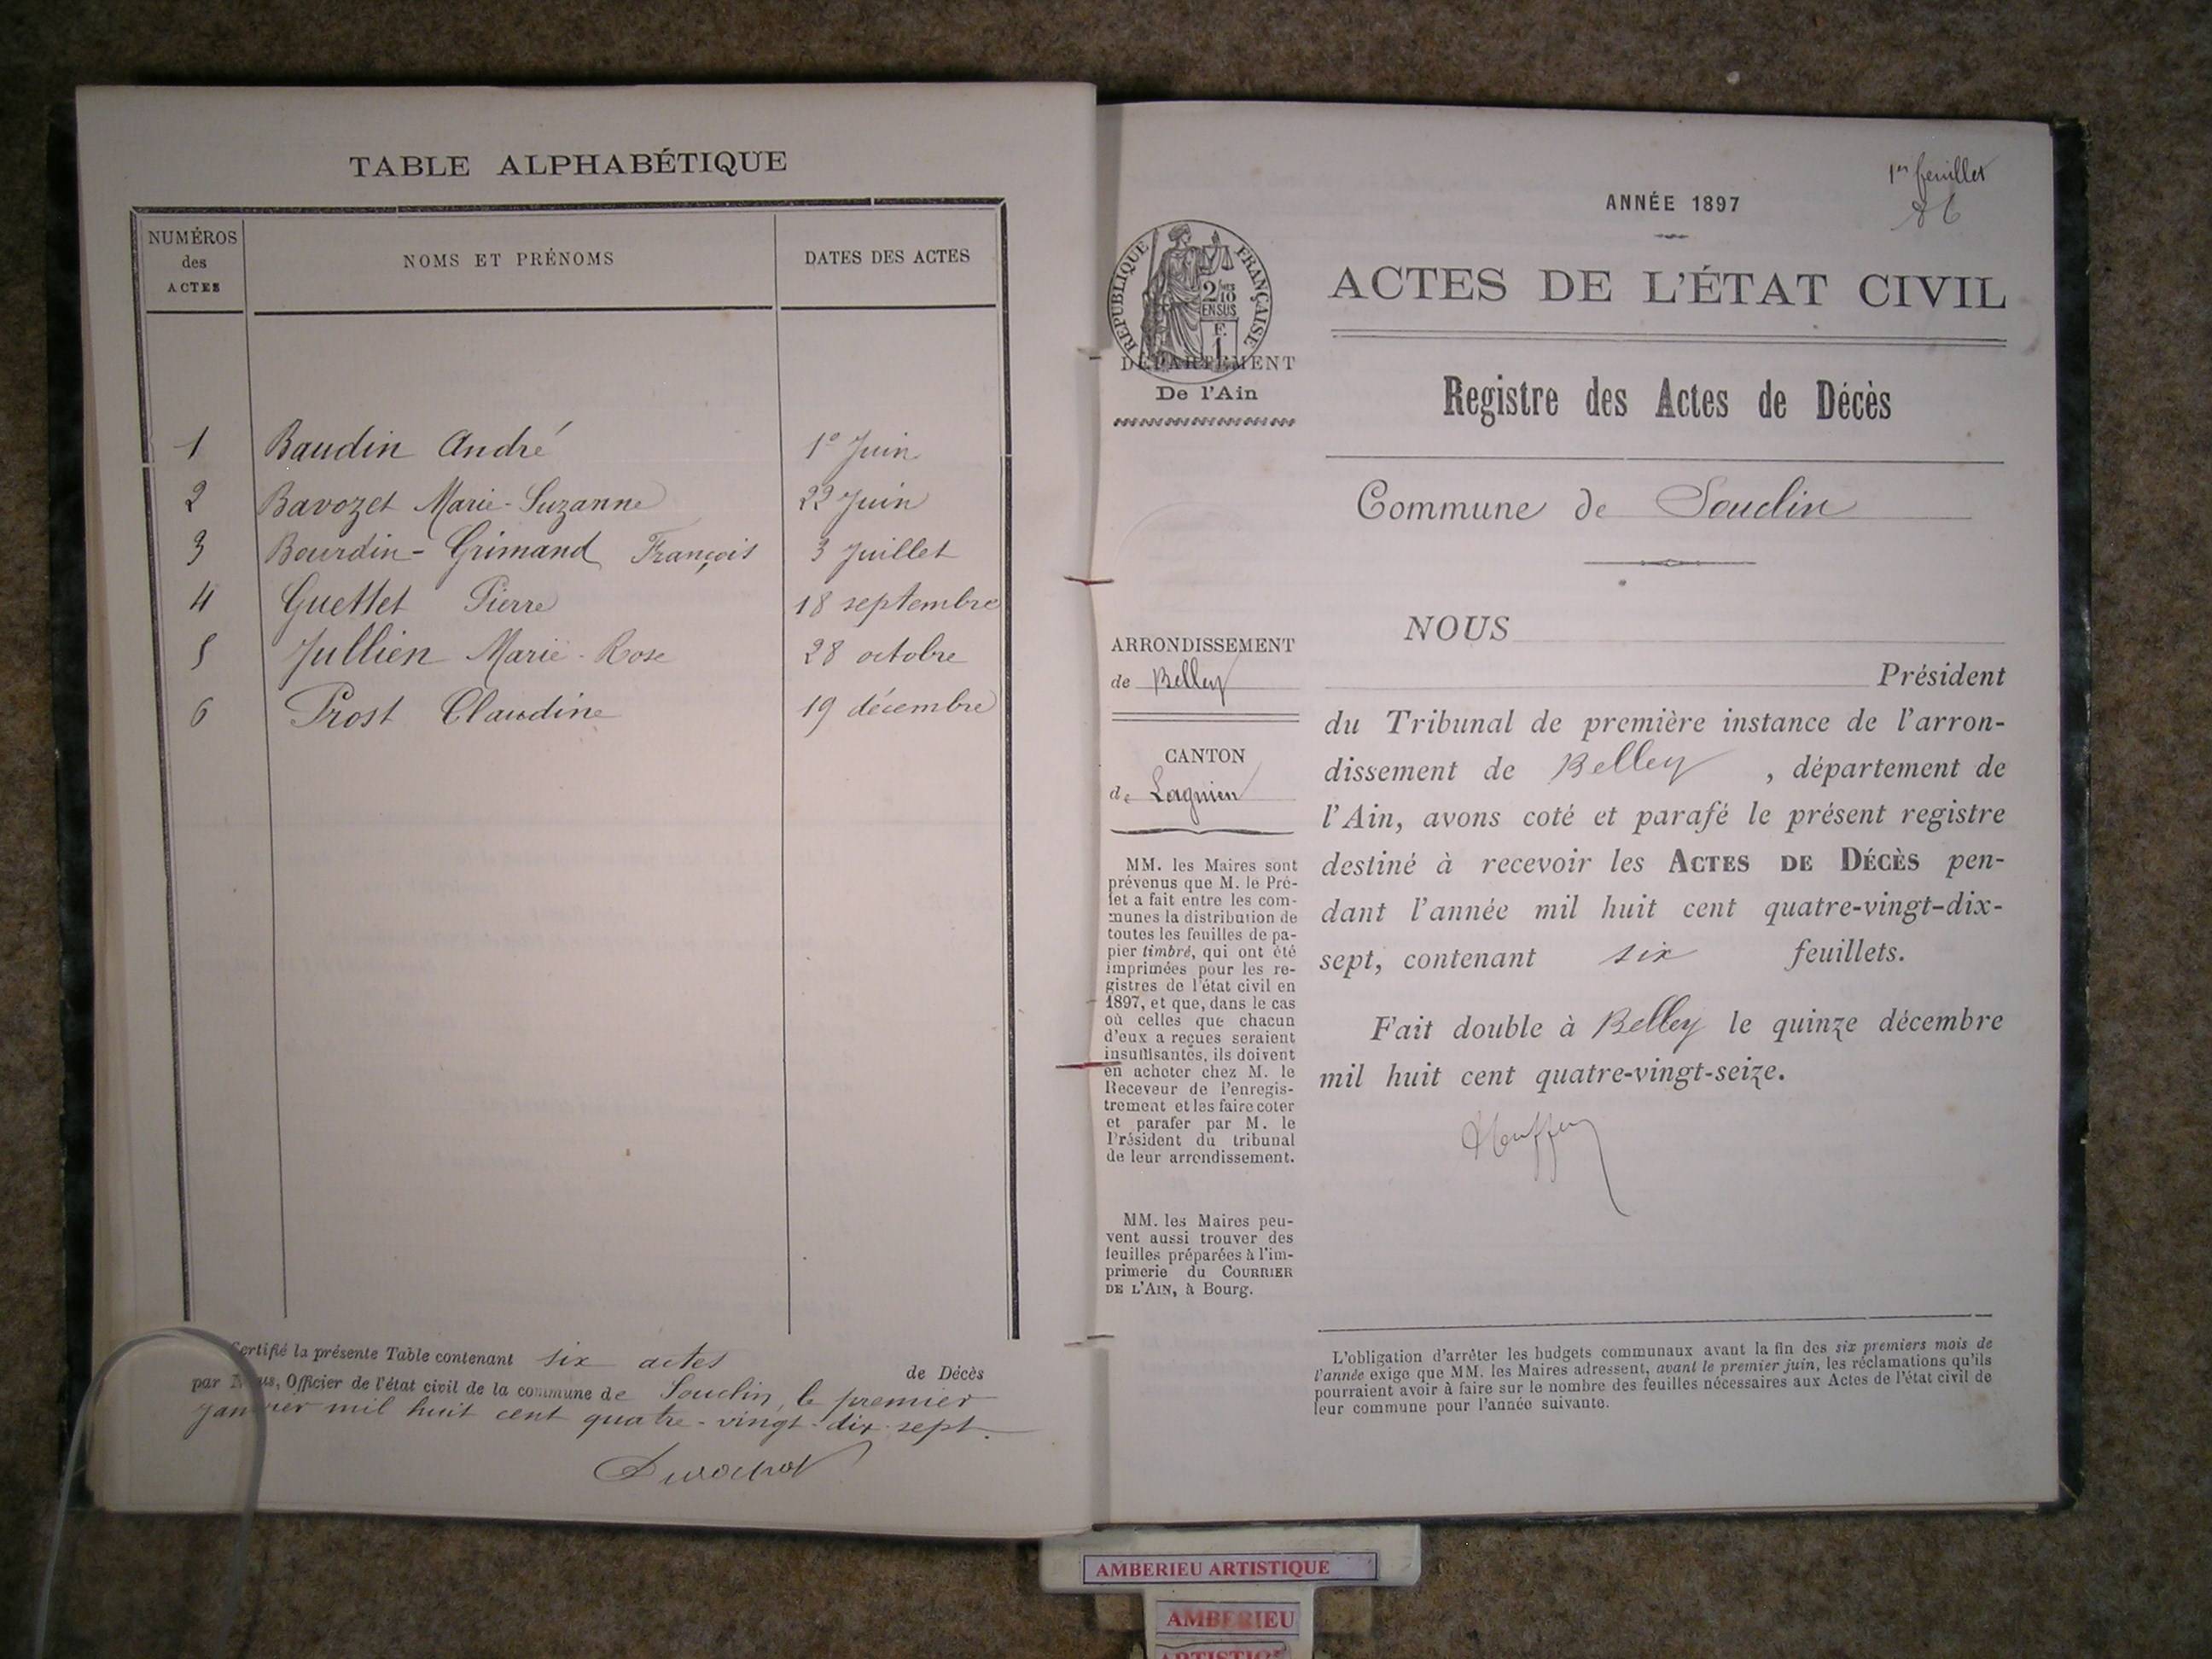 TABLE ALPHABÉTIQUE
NUMÉROS
des
ACTES
NOMS ET PRÉNOMS
DATES DES ACTES
1 Baudin André 1º Juin
2 Bavozet Marie-Suzanne 22 Juin
3 Bourdin-Grimand François 3 Juillet
4 Guettet Pierre 18 septembre
5 Jullien Marie-Rose 28 octobre
6 Prost Claudine 19 décembre
Certifié la présente Table contenant six actes de Décès
par Nous, Officier de l'état civil de la commune de Souclin, le premier
janvier mil huit cent quatre-vingt-dix-sept.
1er feuillet
ANNÉE 1897
RÉPUBLIQUE FRANÇAISE
2/10
EN SUS
F.
1
ACTES DE L'ÉTAT CIVIL
DÉPARTEMENT
De l'Ain
Registre des Actes de Décès
Commune de Souclin
ARRONDISSEMENT
de Belley
CANTON
de Lagnieu
MM. les Maires sont
prévenus que M. le Pré-
fet a fait entre les com-
munes la distribution de
toutes les feuilles de pa-
pier timbré, qui ont été
imprimées pour les re-
gistres de l'état civil en
1897, et que, dans le cas
où celles que chacun
d'eux a reçues seraient
insuffisantes, ils doivent
en acheter chez M. le
Receveur de l'enregis-
trement et les faire coter
et parafer par M. le
Président du tribunal
de leur arrondissement.
MM. les Maires peu-
vent aussi trouver des
feuilles préparées à l'im-
primerie du COURRIER
DE L'AIN, à Bourg.
NOUS
Président
du Tribunal de première instance de l'arron-
dissement de Belley , département de
l'Ain, avons coté et parafé le présent registre
destiné à recevoir les ACTES DE DÉCÈS pen-
dant l'année mil huit cent quatre-vingt-dix-
sept, contenant six feuillets.
Fait double à Belley le quinze décembre
mil huit cent quatre-vingt-seize.
L'obligation d'arrêter les budgets communaux avant la fin des six premiers mois de
l'année exige que MM. les Maires adressent, avant le premier juin, les réclamations qu'ils
pourraient avoir à faire sur le nombre des feuilles nécessaires aux Actes de l'état civil de
leur commune pour l'année suivante.
AMBERIEU ARTISTIQUE
AMBERIEU
ARTISTIQUE